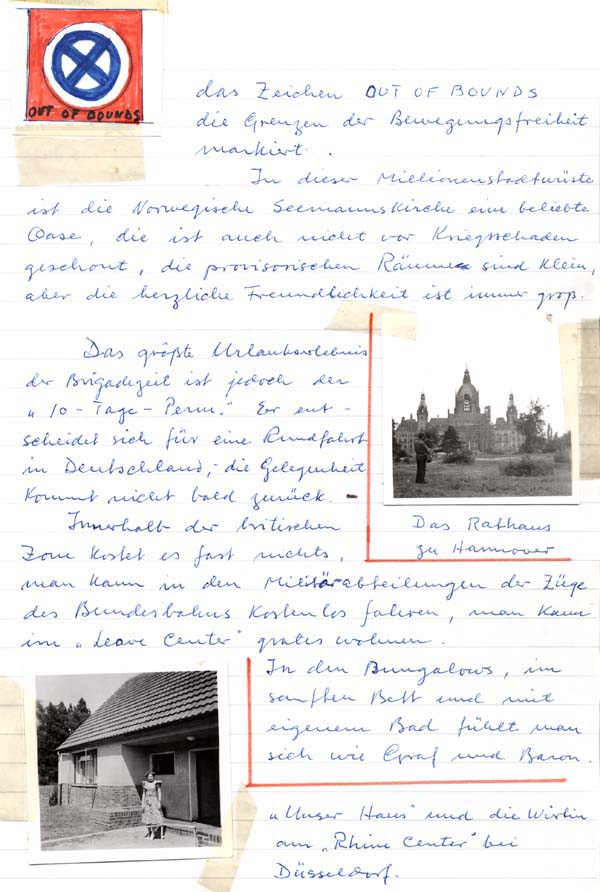 OUT OF BOUNDS
das Zeichen OUT OF BOUNDS
die Grenzen der Bewegungsfreiheit
markiert.
In dieser Millionenstadtwüste
ist die Norwegische Seemannskirche eine beliebte
Oase, die ist auch nicht vor Kriegsschaden
geschont, die provisorischen Räume sind klein,
aber die herzliche Freundlichkeit ist immer groß.
Das größte Urlaubserlebnis
der Brigadezeit ist jedoch der
"10-Tage-Perm." Er ent-
scheidet sich für eine Rundfahrt
in Deutschland, - die Gelegenheit
kommt nicht bald zurück. -
Innerhalb der britischen
Zone kostet es fast nichts,
man kann in den Militärabteilungen der Züge
des Bundesbahns kostenlos fahren, man kann
im "Leave Center" gratis wohnen.
Das Rathaus
zu Hannover
In den Bungalows, im
sanften Bett und mit
eigenem Bad fühlt man
sich wie Graf und Baron.
"Unser Haus" und die Wirtin
am "Rhine Center" bei
Düsseldorf.